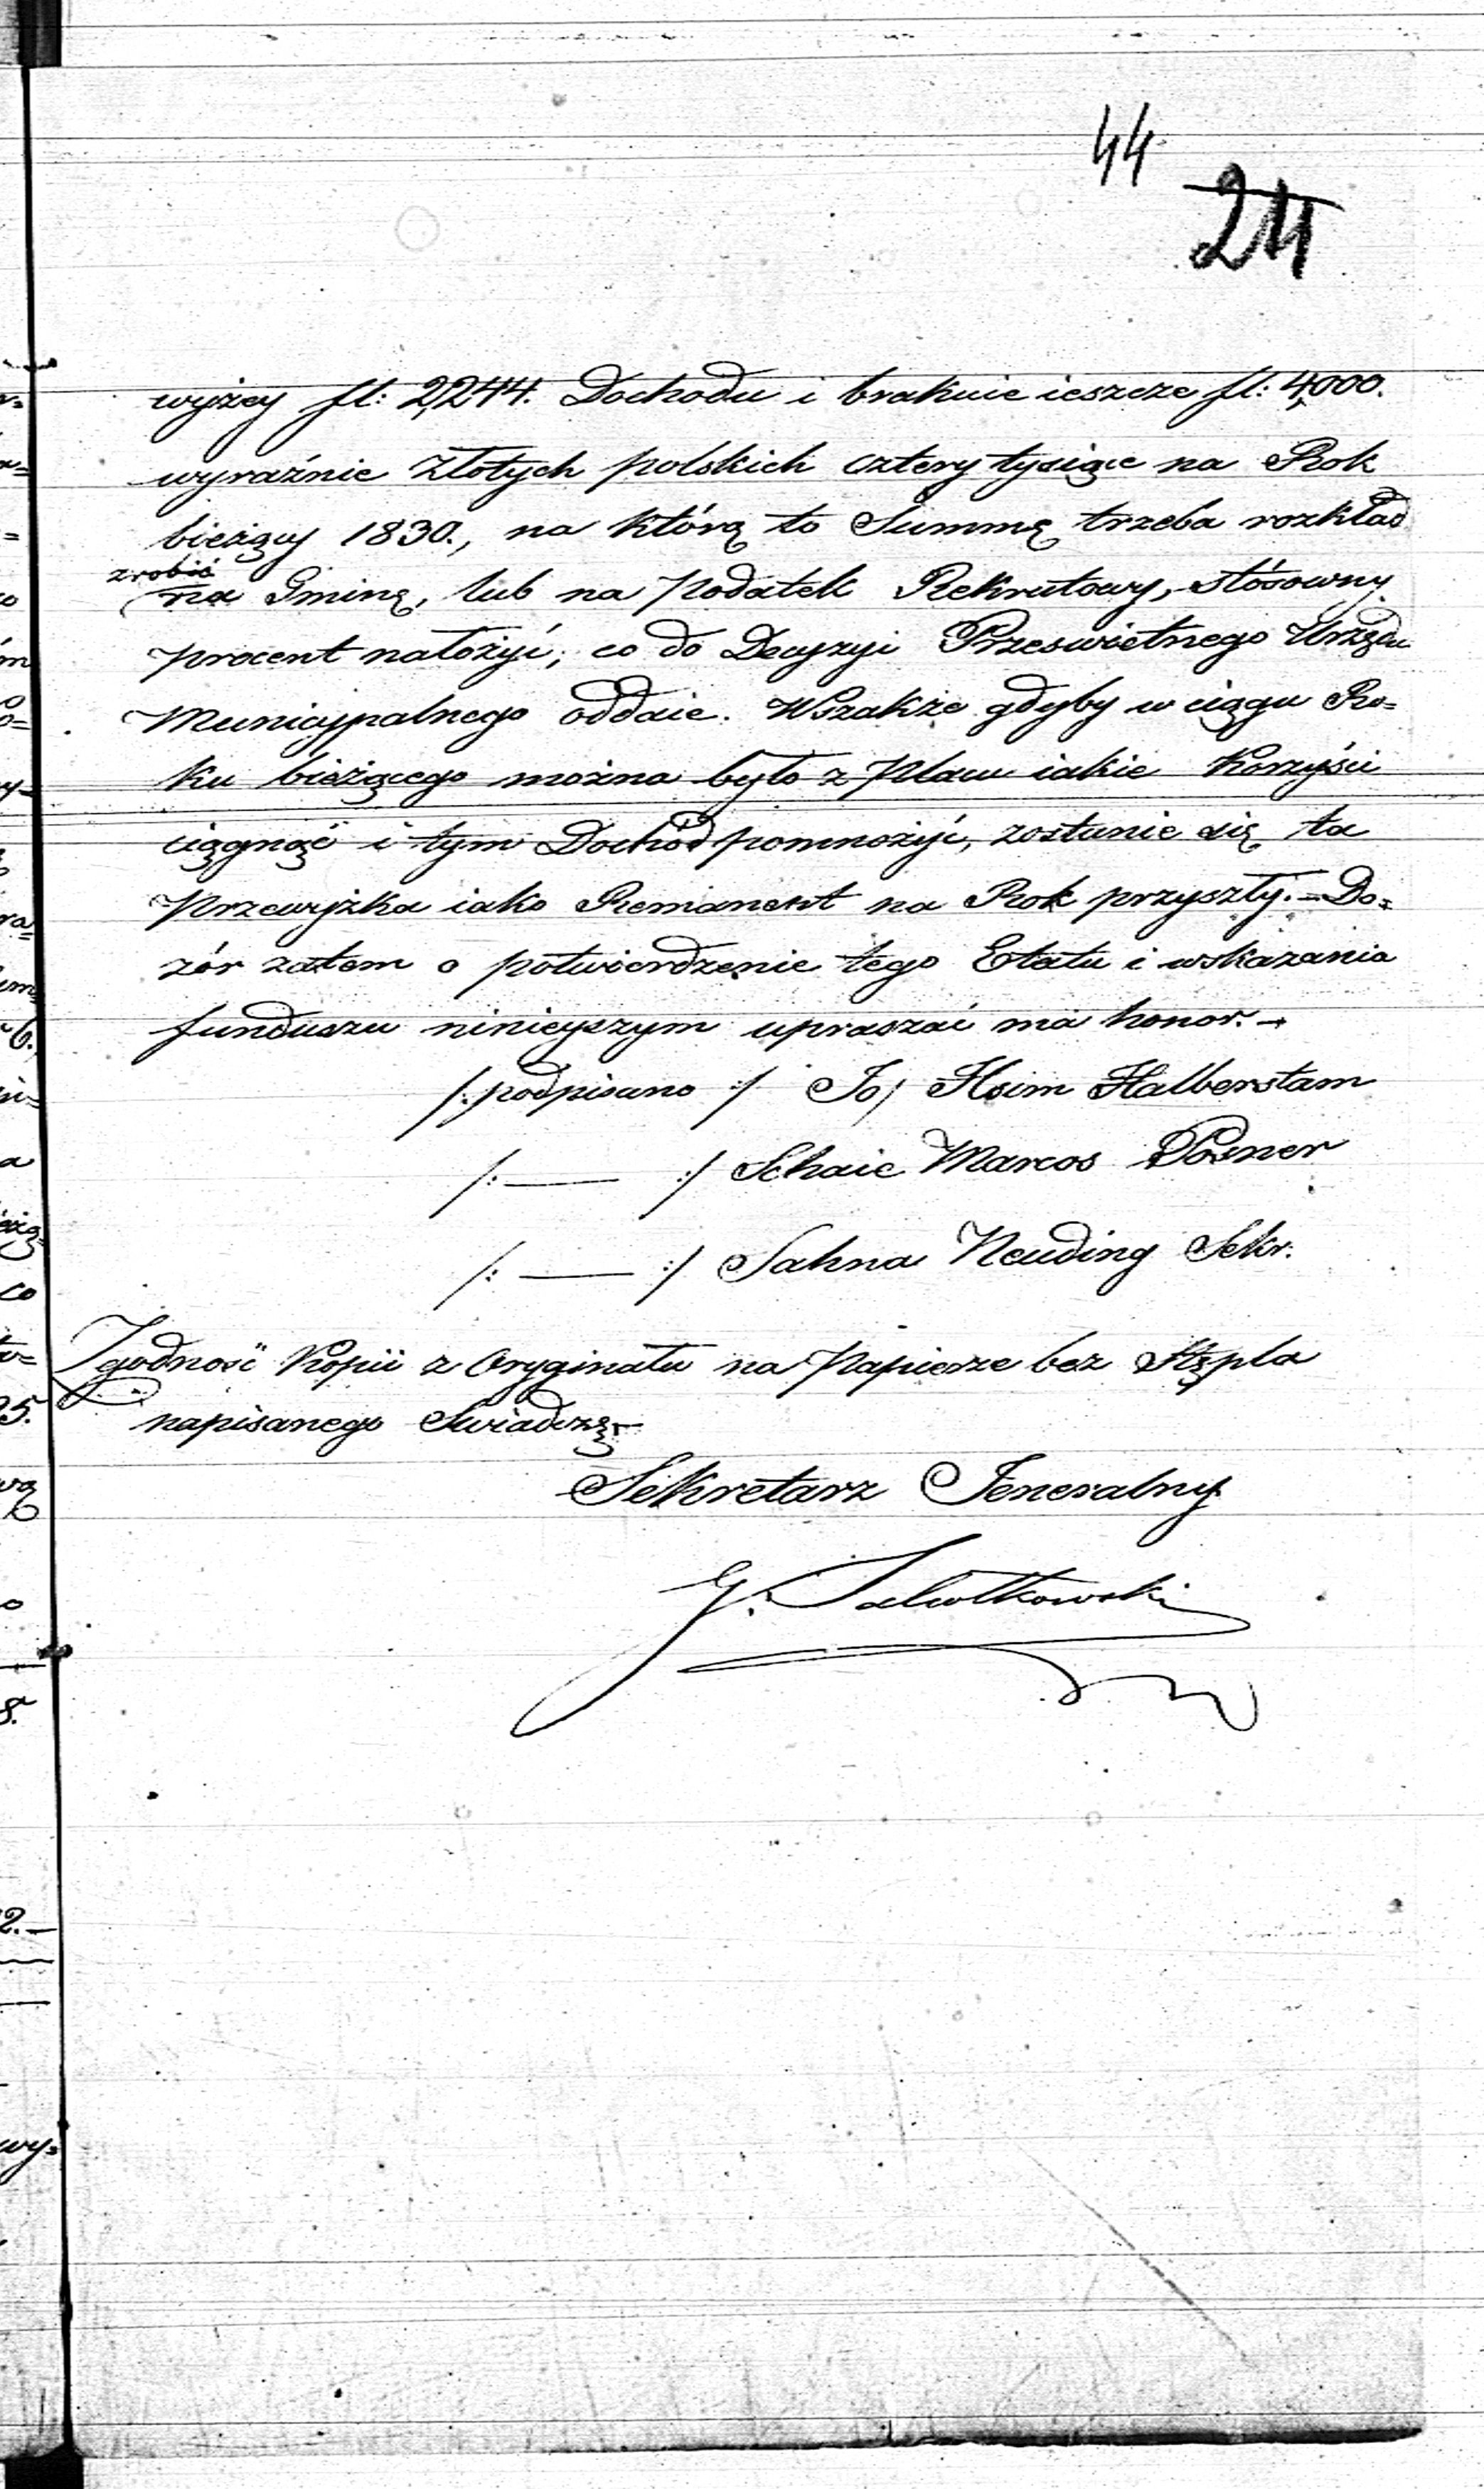 44
24
wyżey fl: 2,244. Dochodu i brakuie ieszcze fl: 4,000.
wyraźnie Złotych polskich cztery tysiące na Rok
bieżący 1830., na którą to Summę trzeba rozkład
zrobić
na Gminę, lub na podatek Rekrutowy, stósowny
procent nałożyć; co do Decyzyi Prześwietnego Urzędu
Municypalnego oddaie. Wszakże gdyby w ciągu Ro=
ku bieżącego można było z Placu iakie Korzyści
ciągnąć i tym Dochód pomnożyć, zostanie się ta
przewyżka iako Remanent na Rok przyszły. – Do=
zór zatem o potwierdzenie tego Etatu i wskazania
funduszu ninieyszym upraszać ma honor. –
/: podpisano :/ Jo/ Haim Halberstam
/: —— :/ Schaie Marcos Posner
/: —— :/ Sahna Neuding Sekr.
Zgodność Kopii z Oryginału na Papierze bez Stępla
napisanego Swiadczę –
Sekretarz Jeneralny
G.